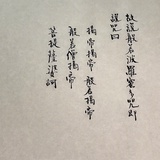 故說般若波羅蜜多咒即
說咒曰
揭帝揭帝 般若揭帝
般若僧揭帝
菩提薩婆訶